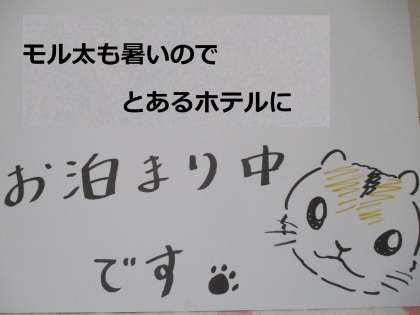 モル太も暑いので
とあるホテルに
お泊まり中
です